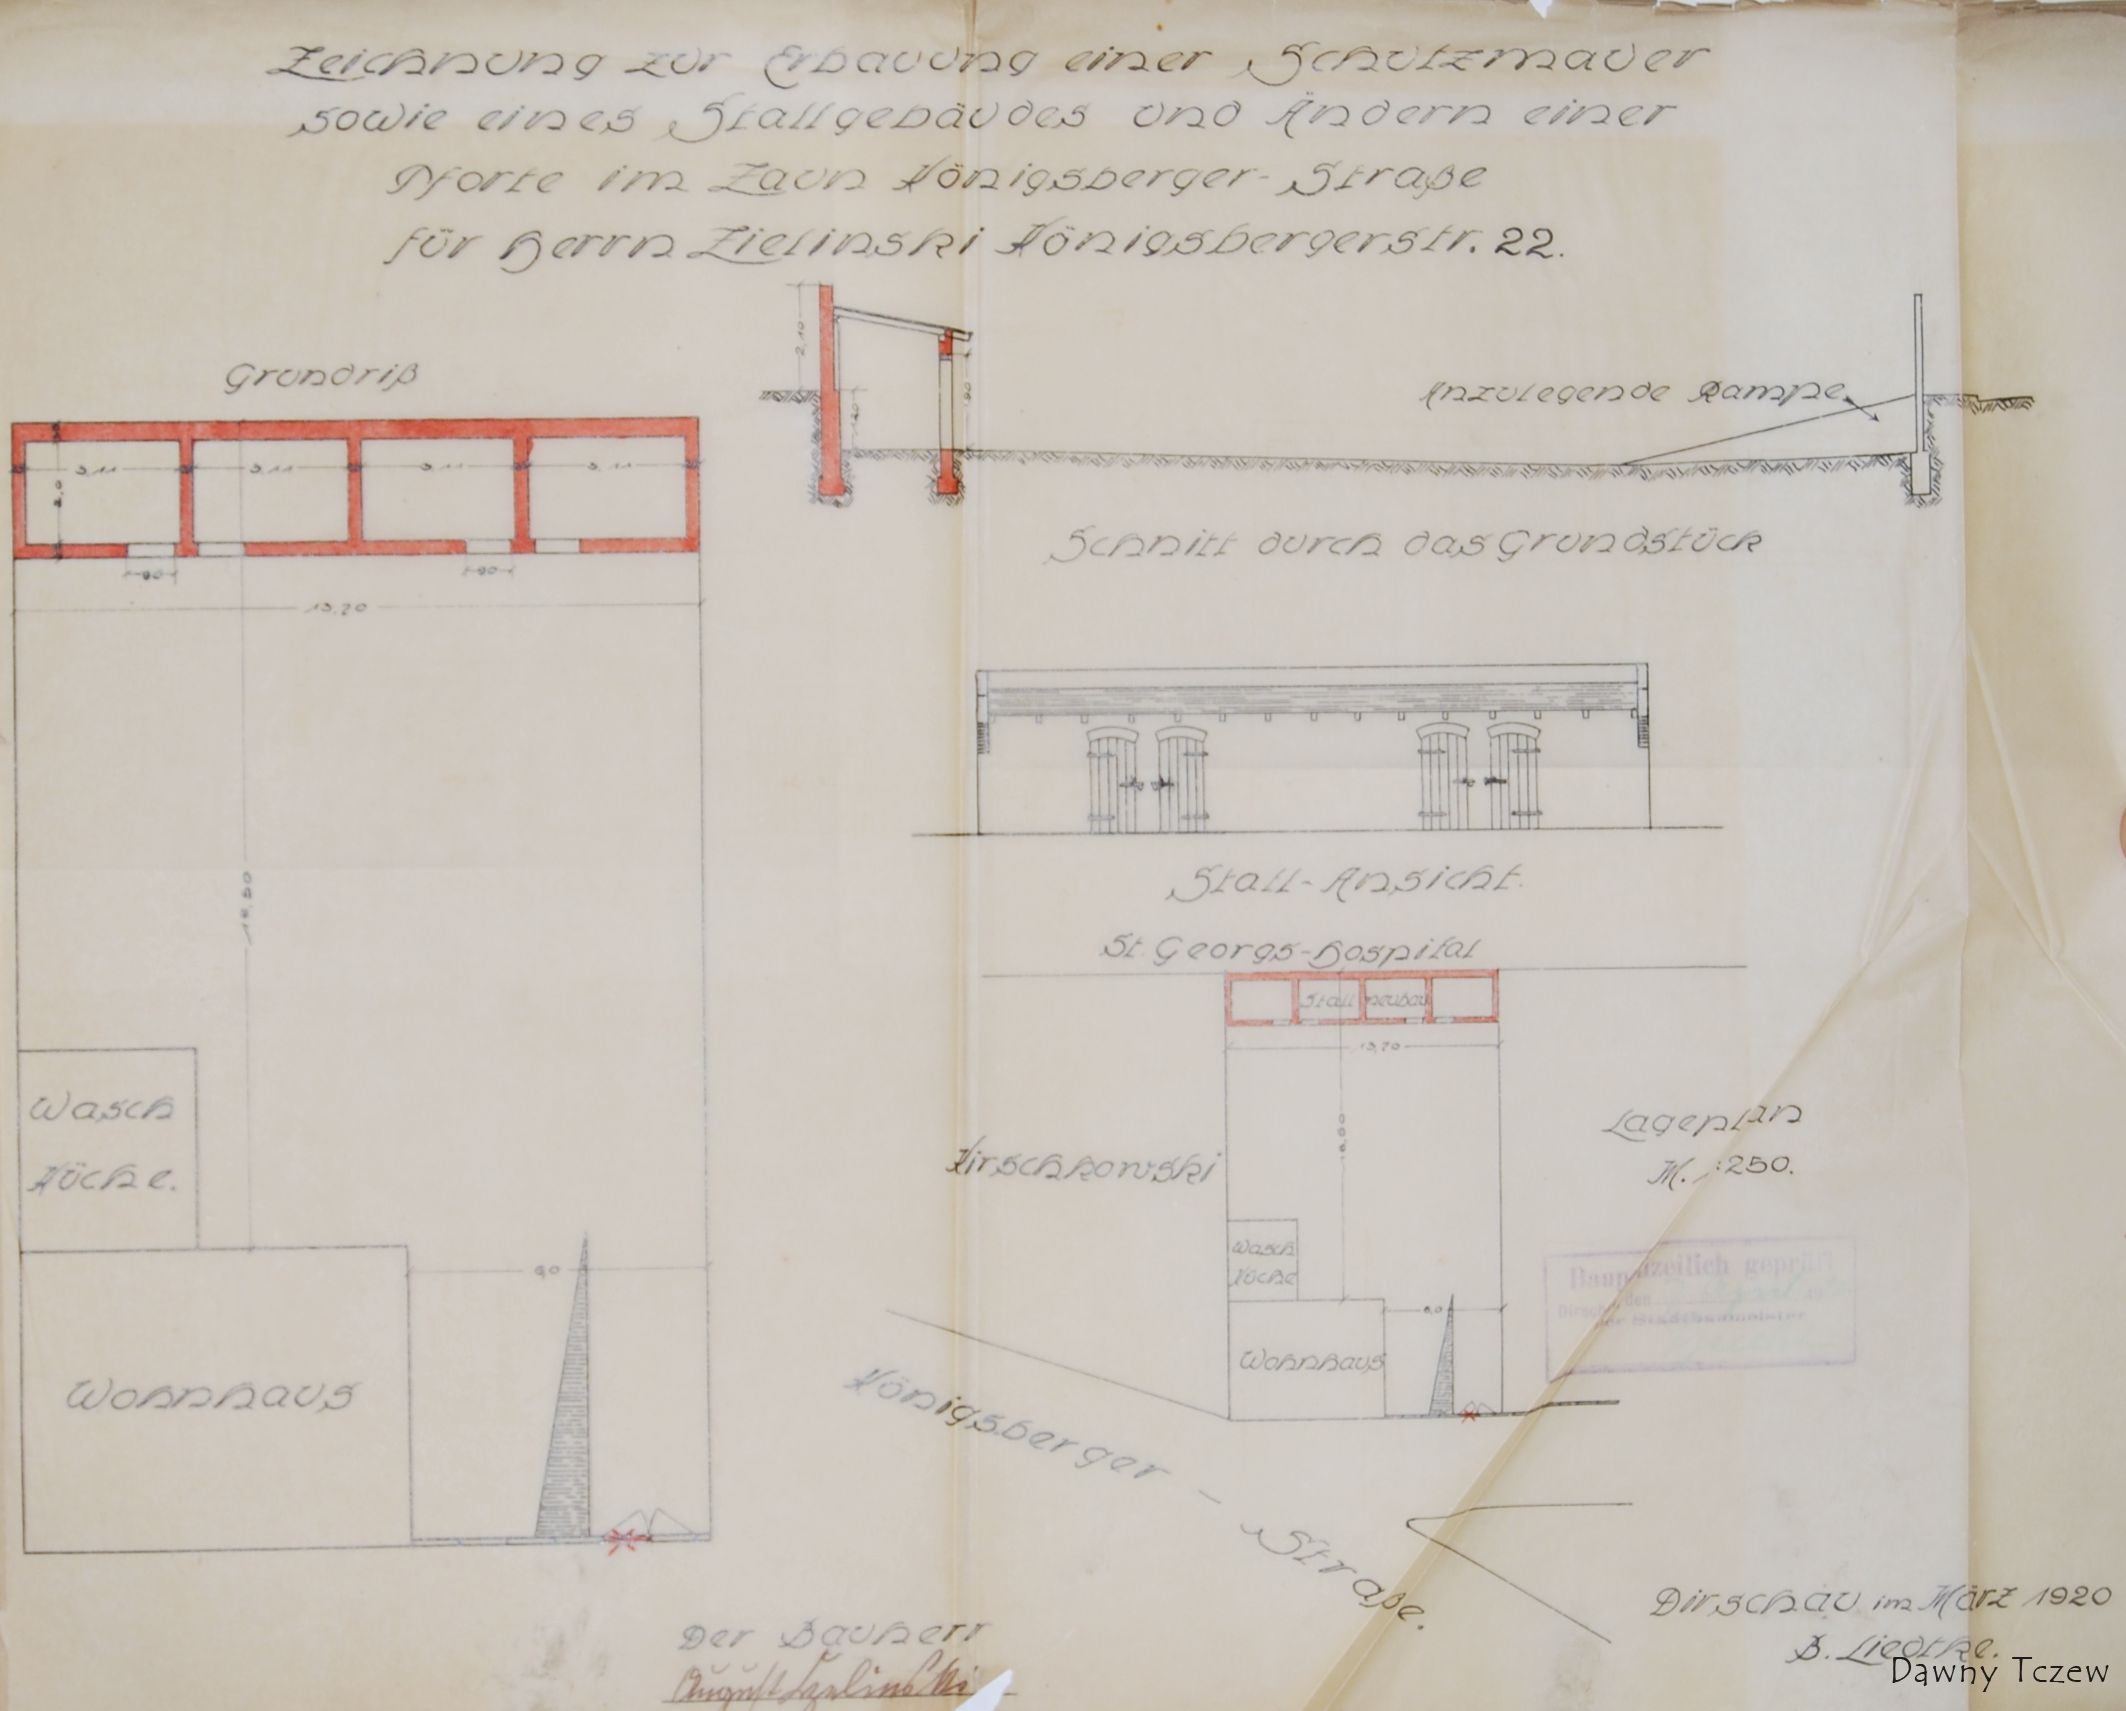 Zeichnung zur Erbauung einer Schutzmauer
sowie eines Stallgebäudes und Ändern einer
Pforte im Zaun Königsberger-Straße
für Herrn Zielinski Königsbergerstr. 22.
Grundriß
2,10
Anzulegende Rampe
Schnitt durch das Grundstück
3,11 3,11 3,11 3,11
90 90
13,20
Stall-Ansicht.
St. Georgs-Hospital
Stall neubau
13,20
Wasch
Küche.
Kirschkowski
Lageplan
M. 1:250.
Wasch
Küche
Baupolizeilich geprüft
Dirschau, den
Der Stadtbaumeister
6,0
Wohnhaus
6,0
Wohnhaus
Königsberger - Straße.
Dirschau im März 1920
B. Liedtke.
Der Bauherr
August Zielinski
Dawny Tczew